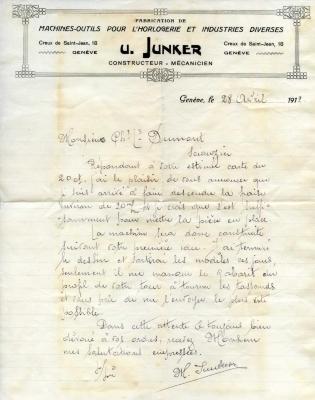 FABRICATION DE
MACHINES-OUTILS POUR L'HORLOGERIE ET INDUSTRIES DIVERSES
Creux de Saint-Jean, 18
GENÈVE
U. JUNKER
Creux de Saint-Jean, 18
GENÈVE
CONSTRUCTEUR - MÉCANICIEN
Genève, le 28 Avril 191
Monsieur Ch. Dumont
Répondant à votre estimée carte du
20 ct, j'ai le plaisir de vous annoncer que
je suis arrivé à faire descendre la
de 20 je crois que c'est
pour mettre la pièce en place
La machine sera donc construite
suivant votre première idée. J'ai terminé
le dessin et sortirai les modèles ces jours,
seulement il me manque le gabarit du
profil de votre tour à tourner les
et vous prie de me l'envoyer le plus vite
possible.
Dans cette attente et toujours bien
dévoué à vos ordres, recevez Monsieur
mes salutations empressées.
Junker